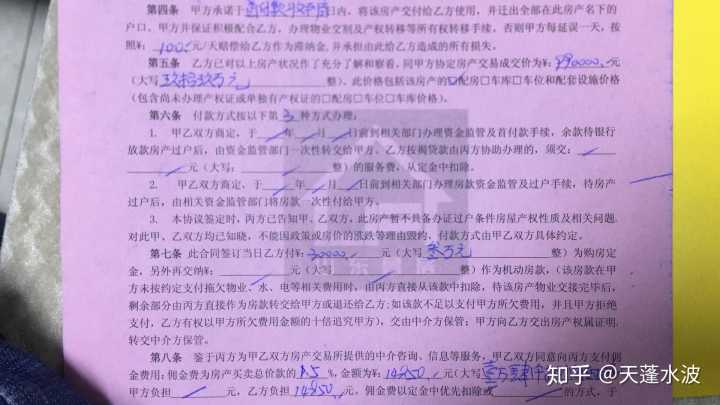 第四条 甲方承诺于 日内，将该房产交付给乙方使用，并迁出全部在此房产名下的
户口，甲方并保证积极配合乙方，办理物业交割及产权转移等所有权转移手续。否则甲方每延误一天，按
照¥: 100 元/天赔偿给乙方作为滞纳金，并承担由此给乙方造成的所有损失。
第五条 乙方已对以上房产状况作了充分了解和察看，同甲方协定房产交易成交价为¥: 990000 元
（大写 玖拾玖万元 整）。此价格包括该房产的☑配房□车库□车位和配套设施价格
（包含尚未办理产权证或单独有产权证的□配房□车位□车库价格）。
第六条 付款方式按以下第 3 种方式办理：
1. 甲乙双方商定，于 年 月 日前到相关部门办理资金监管及首付款手续，余款待银行
放款房产过户后，由资金监管部门一次性转交给甲方。乙方按揭贷款由丙方协助办理的，须交：
元（大写： 整）的服务费，从定金中扣除。
2. 甲乙双方商定，于 年 月 日前到相关部门办理房款资金监管及过户手续，待房产
过户后，由相关资金监管部门将房款一次性付给甲方。
3. 本协议签定时，丙方已告知甲、乙双方，此房产暂不具备办证过户条件房屋产权性质及相关问题。
对此甲、乙双方均已知晓，不能因政策或房价的涨跌等理由毁约，付款方式由甲乙双方具体约定。
第七条 此合同签订当日乙方付¥: 30000 元（大写 叁万元 整）为购房定
金，另外再交纳¥: 元（大写 整）作为机动房款，（该房款在甲
方未按约定支付拖欠物业、水、电等相关费用时，由丙方直接从该款中扣除，待该房产物业交接完毕后，
剩余部分由丙方直接作为房款转交给甲方或退还给乙方；如该款不足以支付甲方所欠费用，并且甲方拒绝
支付，乙方有权以甲方所欠费用金额的十倍追究甲方），交由中介方保管；甲方向乙方交出房产权属证明，
转交中介方保管。
第八条 鉴于丙方为甲乙双方房产交易所提供的中介咨询、信息等服务，甲乙双方同意向丙方支付佣
金费用；佣金费为房产买卖总价款的 1.5 %，金额为¥: 14850 元（大写
甲方负担 元，乙方负担 14850 元，佣金费以定金中优先扣除或 的方式，于
知乎 @天蓬水波